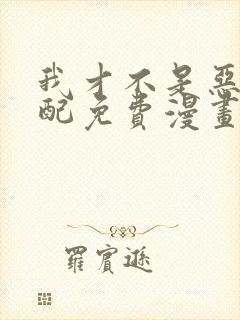 我才不是惡
配免費漫畫
羅賓遜